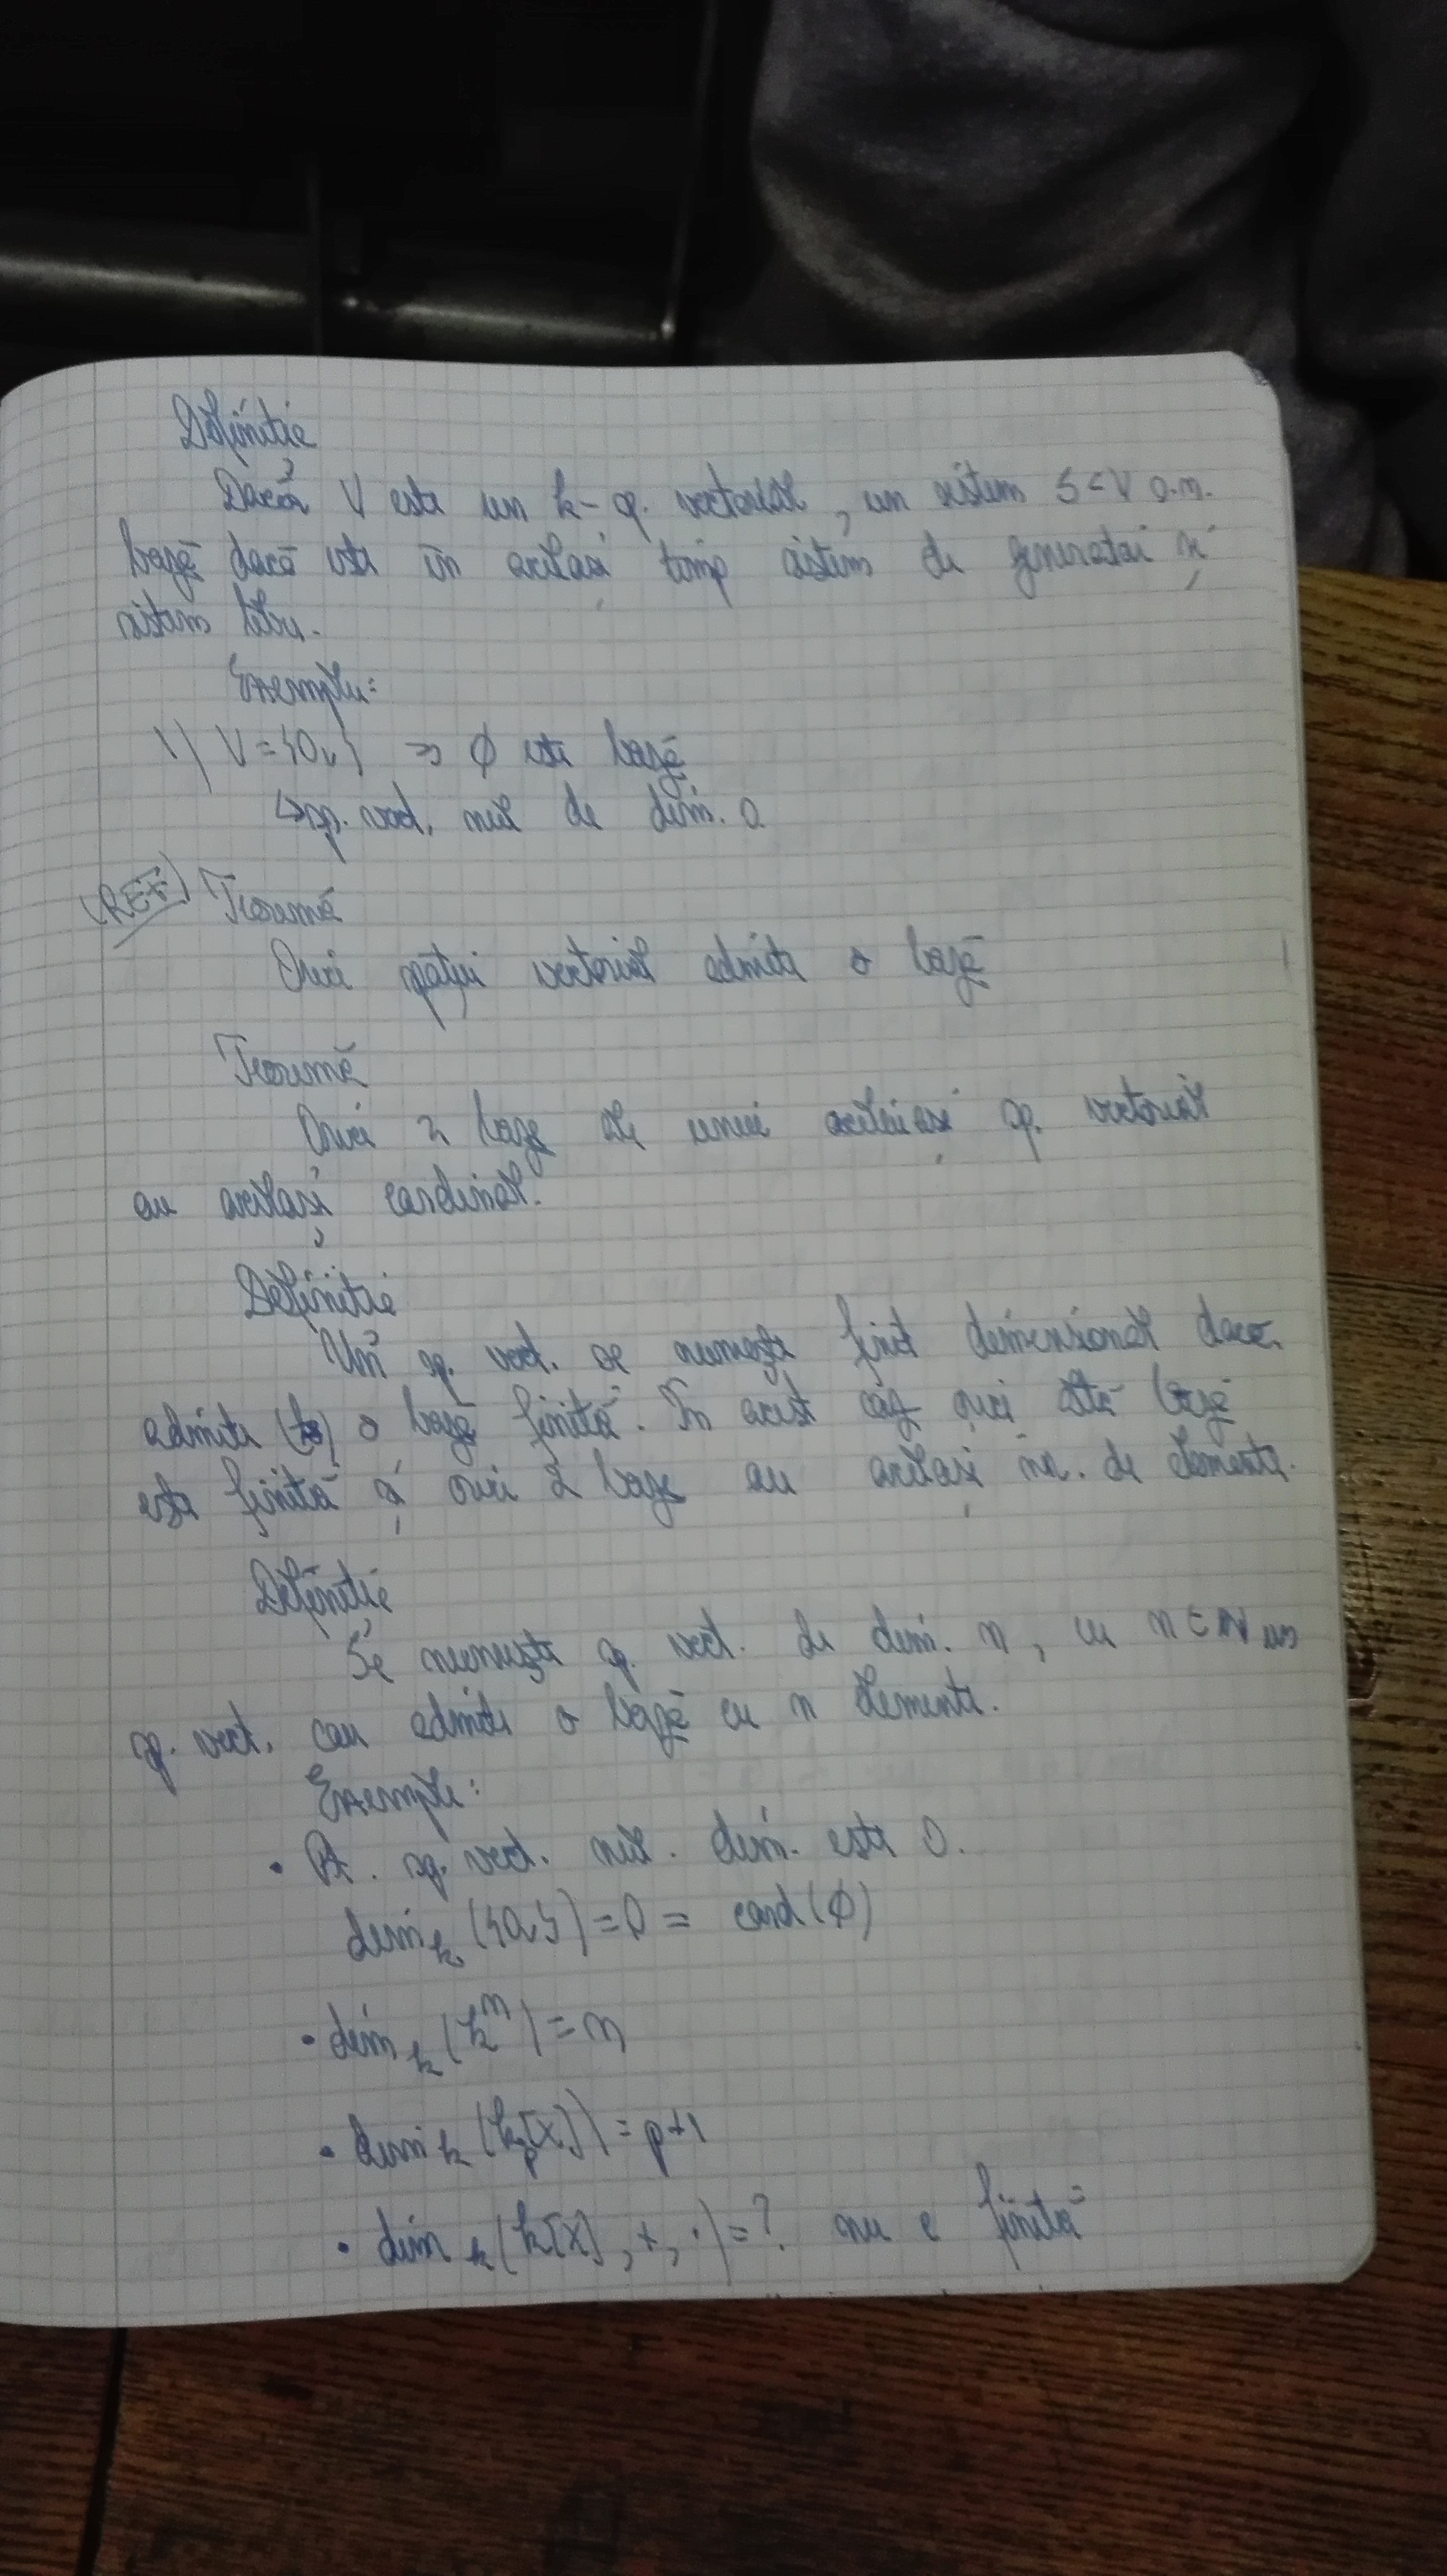 Definiție
Dacă V este un k-sp. vectorial, un sistem S⊂V s.n.
bază dacă este în același timp sistem de generatori și
sistem liber.
Exemplu:
1) V={0ᵥ} ⇒ ∅ este bază
↳sp. vect. nul de dim. 0
(REF) Teoremă
Orice spațiu vectorial admite o bază
Teoremă
Orice 2 baze ale unui aceluiași sp. vectorial
au același cardinal.
Definiție
Un sp. vect. se numește finit dimensional dacă
admite o bază finită. În acest caz orice altă bază
este finită și orice 2 baze au același nr. de elemente.
Definiție
Se numește sp. vect. de dim. n, cu n∈ℕ un
sp. vect. care admite o bază cu n elemente.
Exemple:
• Pt. sp. vect. nul. dim. este 0.
dimₖ({0ᵥ})=0= card(∅)
• dimₖ(kⁿ)=n
• dimₖ(kₚ[X])=p+1
• dimₖ(k[X],+,·)=? nu e finită